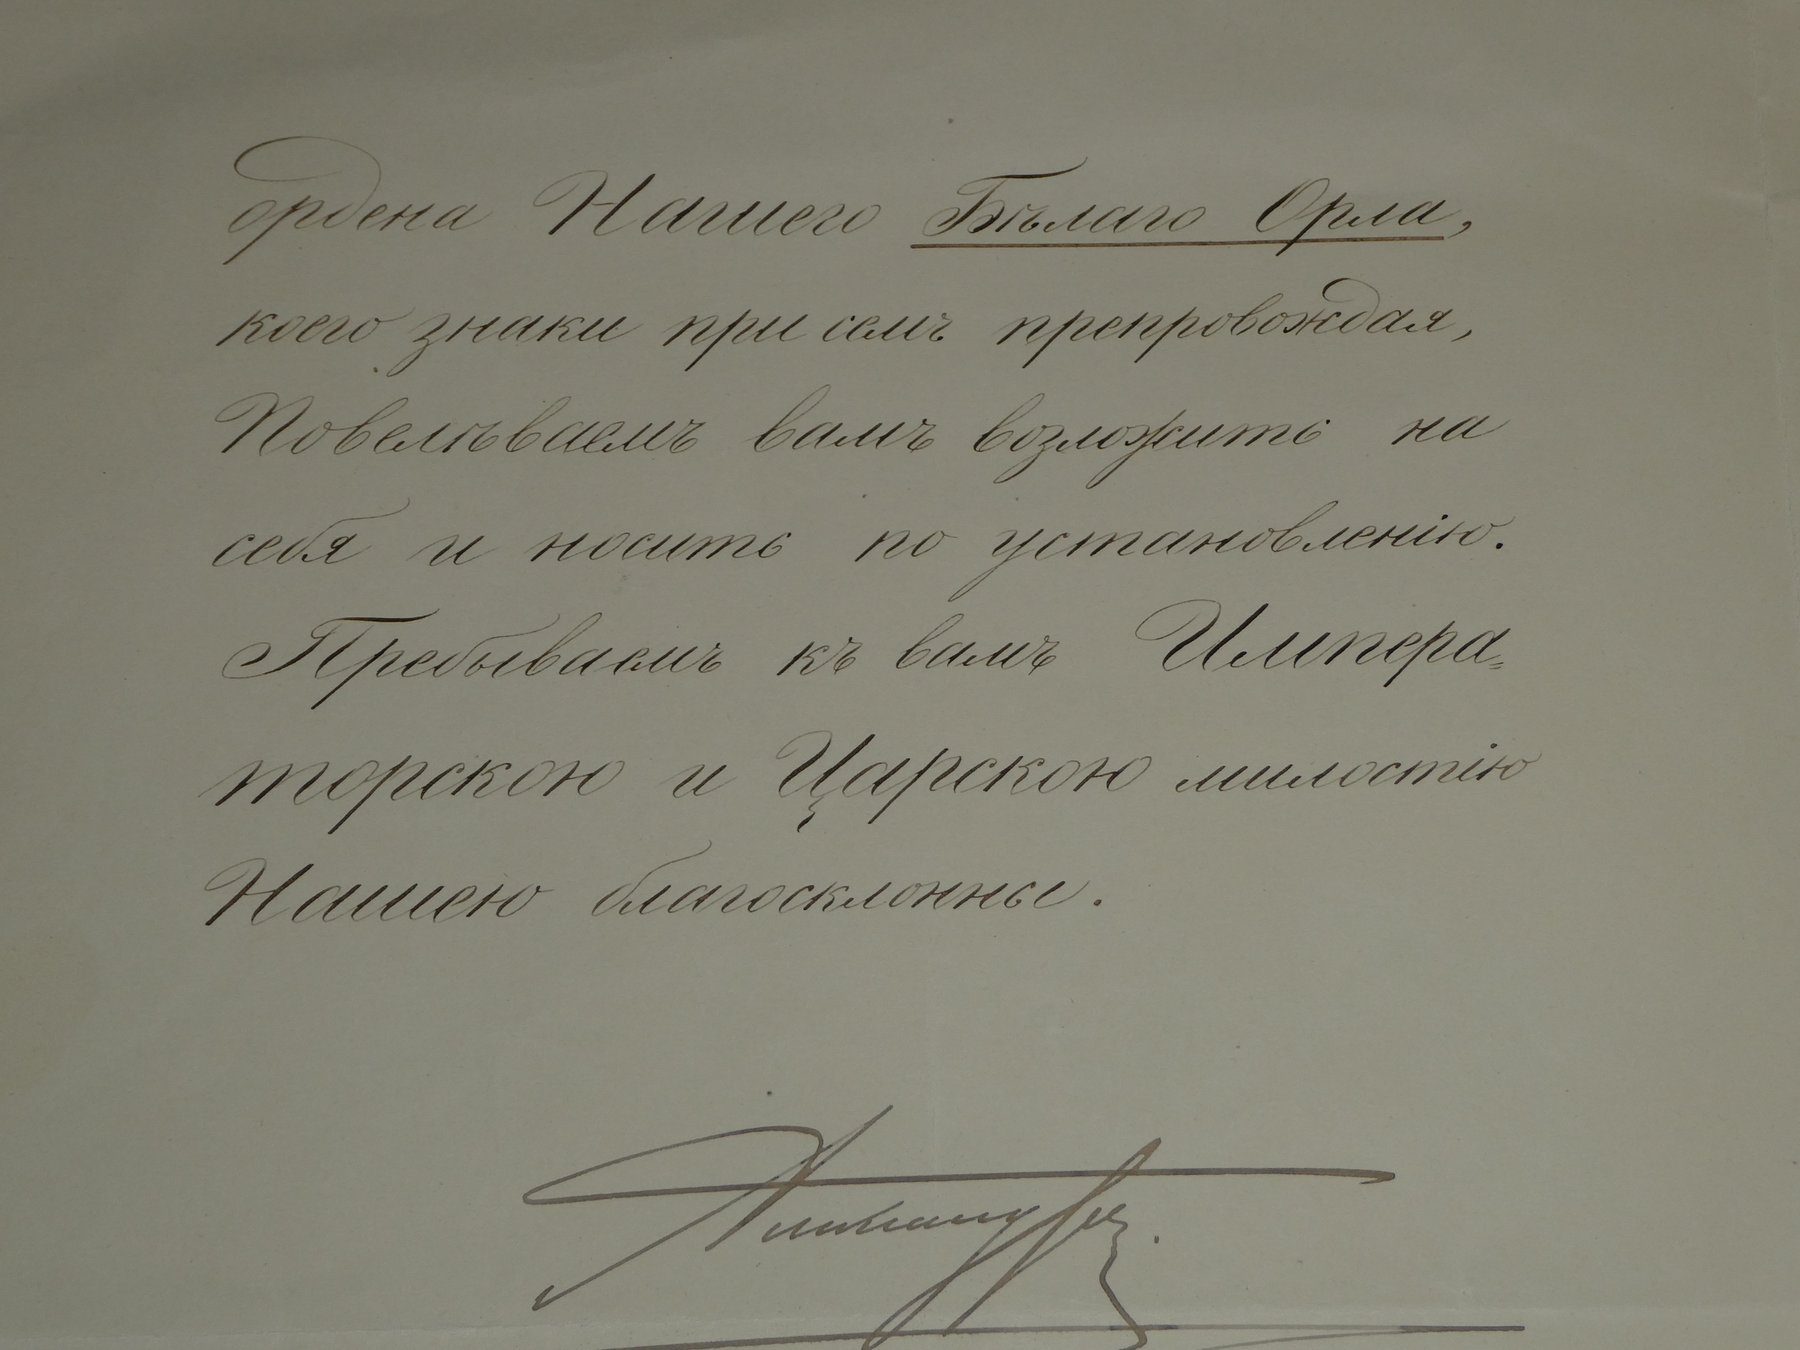 ордена Нашего Бѣлаго Орла,
коего знаки при семъ препровождая,
Повелѣваемъ вамъ возложить на
себя и носить по установленію.
Пребываемъ къ вамъ Импера=
торскою и Царскою милостію
Нашею благосклонны.
Александръ